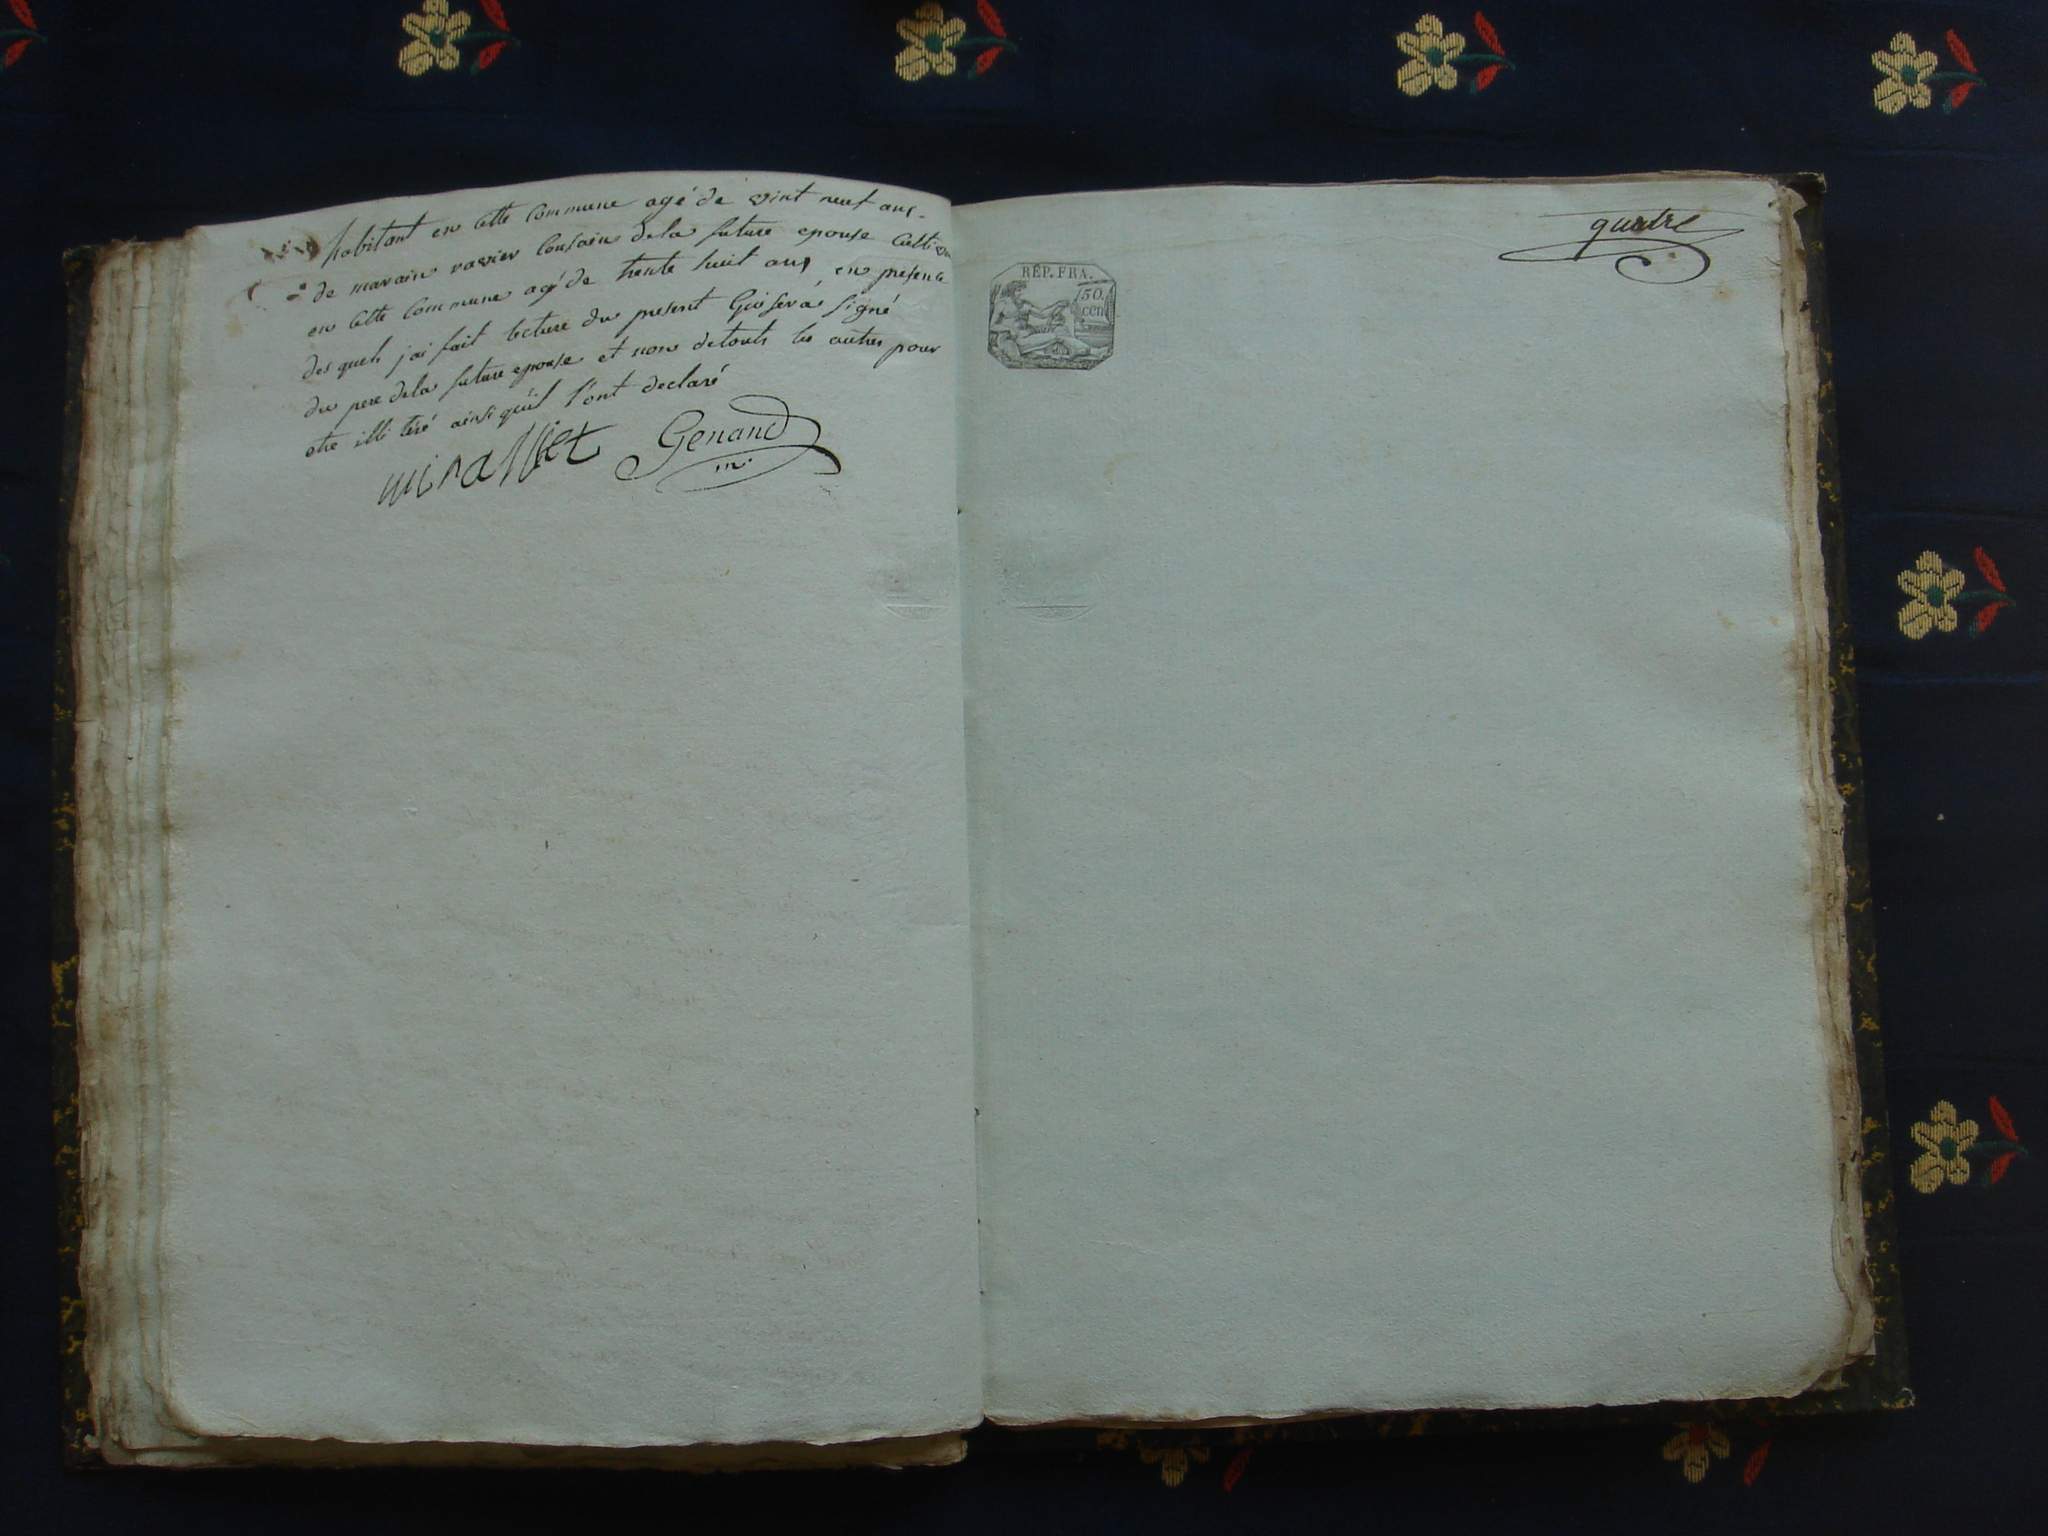 habitant en cette commune agé de vint neuf ans.
de marain ravier cousain dela future epouse culti
en cette commune agé de trente huit ans en presence
des quels jai fait lecture du present Qui sera signé
du pere dela future epouse et non detouts les autres pour
etre illi téré ainsi quil l'ont declaré
miralliet Genand
m.
quatre
RÉP. FRA.
50.
cen